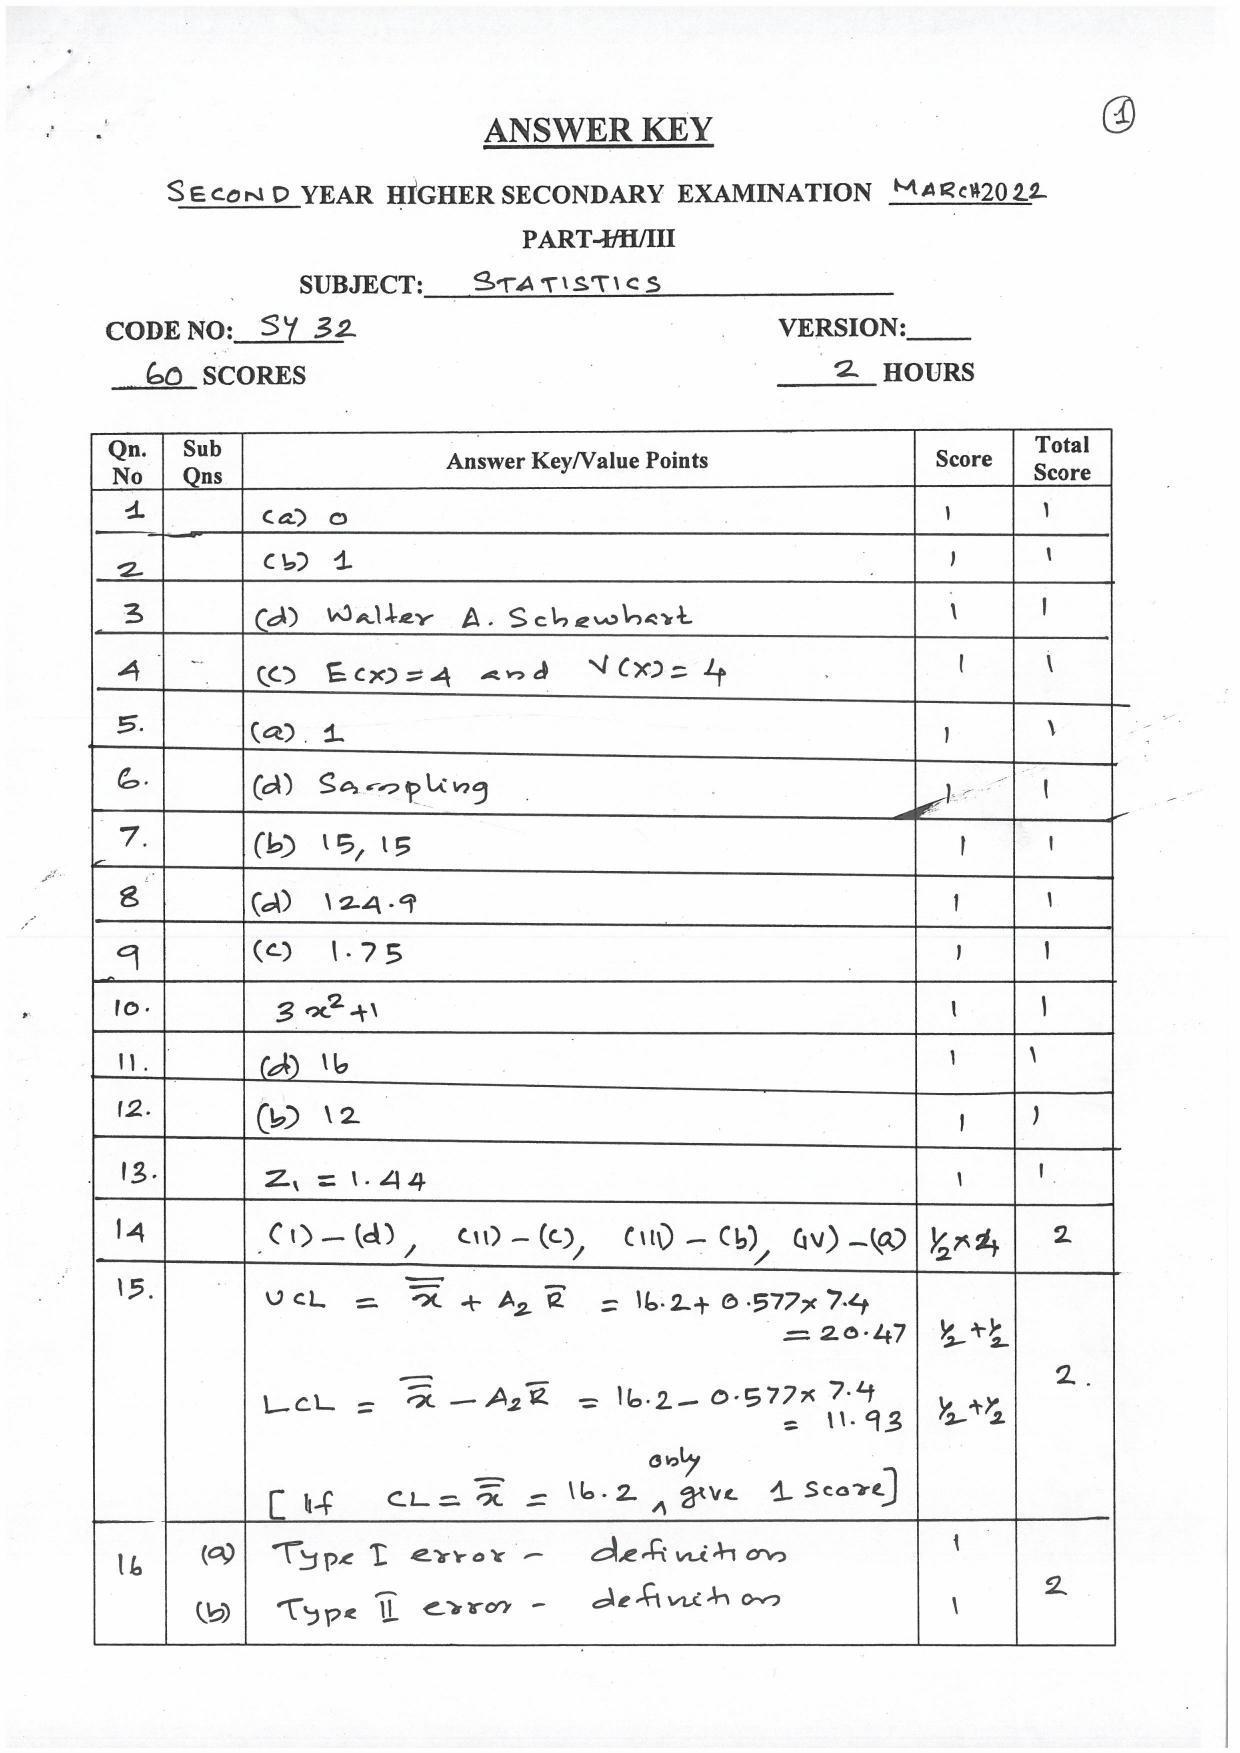 1
ANSWER KEY
SECOND YEAR HIGHER SECONDARY EXAMINATION MARCH 2022
PART-I/II/III
SUBJECT: STATISTICS
CODE NO: SY 32 VERSION:
60 SCORES 2 HOURS
Qn. No Sub Qns Answer Key/Value Points Score Total Score
1 (a) 0 1 1
2 (b) 1 1 1
3 (d) Walter A. Schewhart 1 1
4 (c) E(x)=4 and V(x)=4 1 1
5. (a). 1 1 1
6. (d) Sampling 1 1
7. (b) 15, 15 1 1
8 (d) 124.9 1 1
9 (c) 1.75 1 1
10. 3x²+1 1 1
11. (d) 16 1 1
12. (b) 12 1 1
13. Z₁ = 1.44 1 1
14 (I)–(d), (II)–(c), (III)–(b), (IV)–(a) ½×4 2
15. UCL = x̿ + A₂ R̄ = 16.2+0.577×7.4
= 20.47 ½+½
2.
LCL = x̿ – A₂R̄ = 16.2–0.577×7.4
= 11.93 ½+½
[If CL = x̿ = 16.2 only give 1 score]
16 (a) Type I error – definition 1
2
(b) Type II error – definition 1